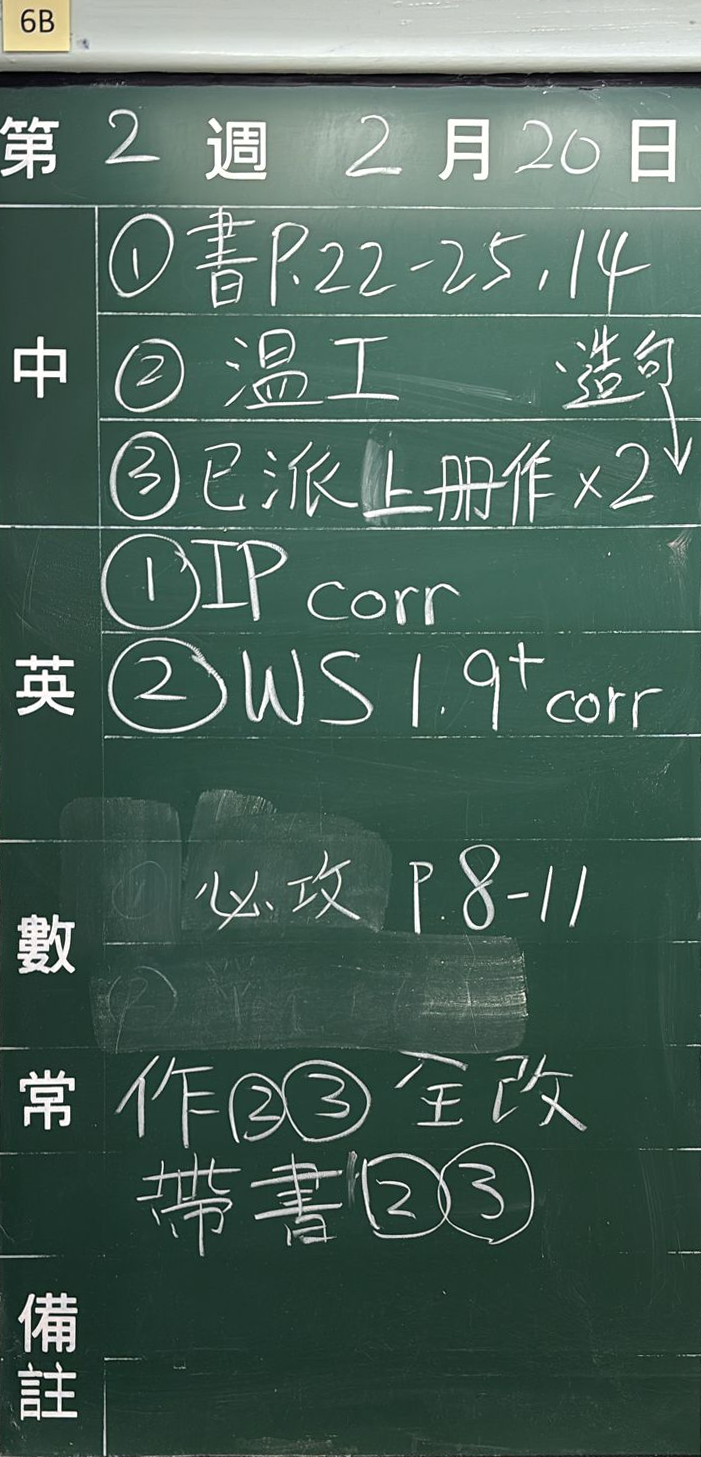 6B
第 2 週 2 月 20 日
中
① 書P.22-25,14
② 温工 造句
③ 已派上册作 x2
英
① IP corr
② WS 1.9+ corr
數
必攻 P.8-11
常
作②③全改
帶書②③
備註